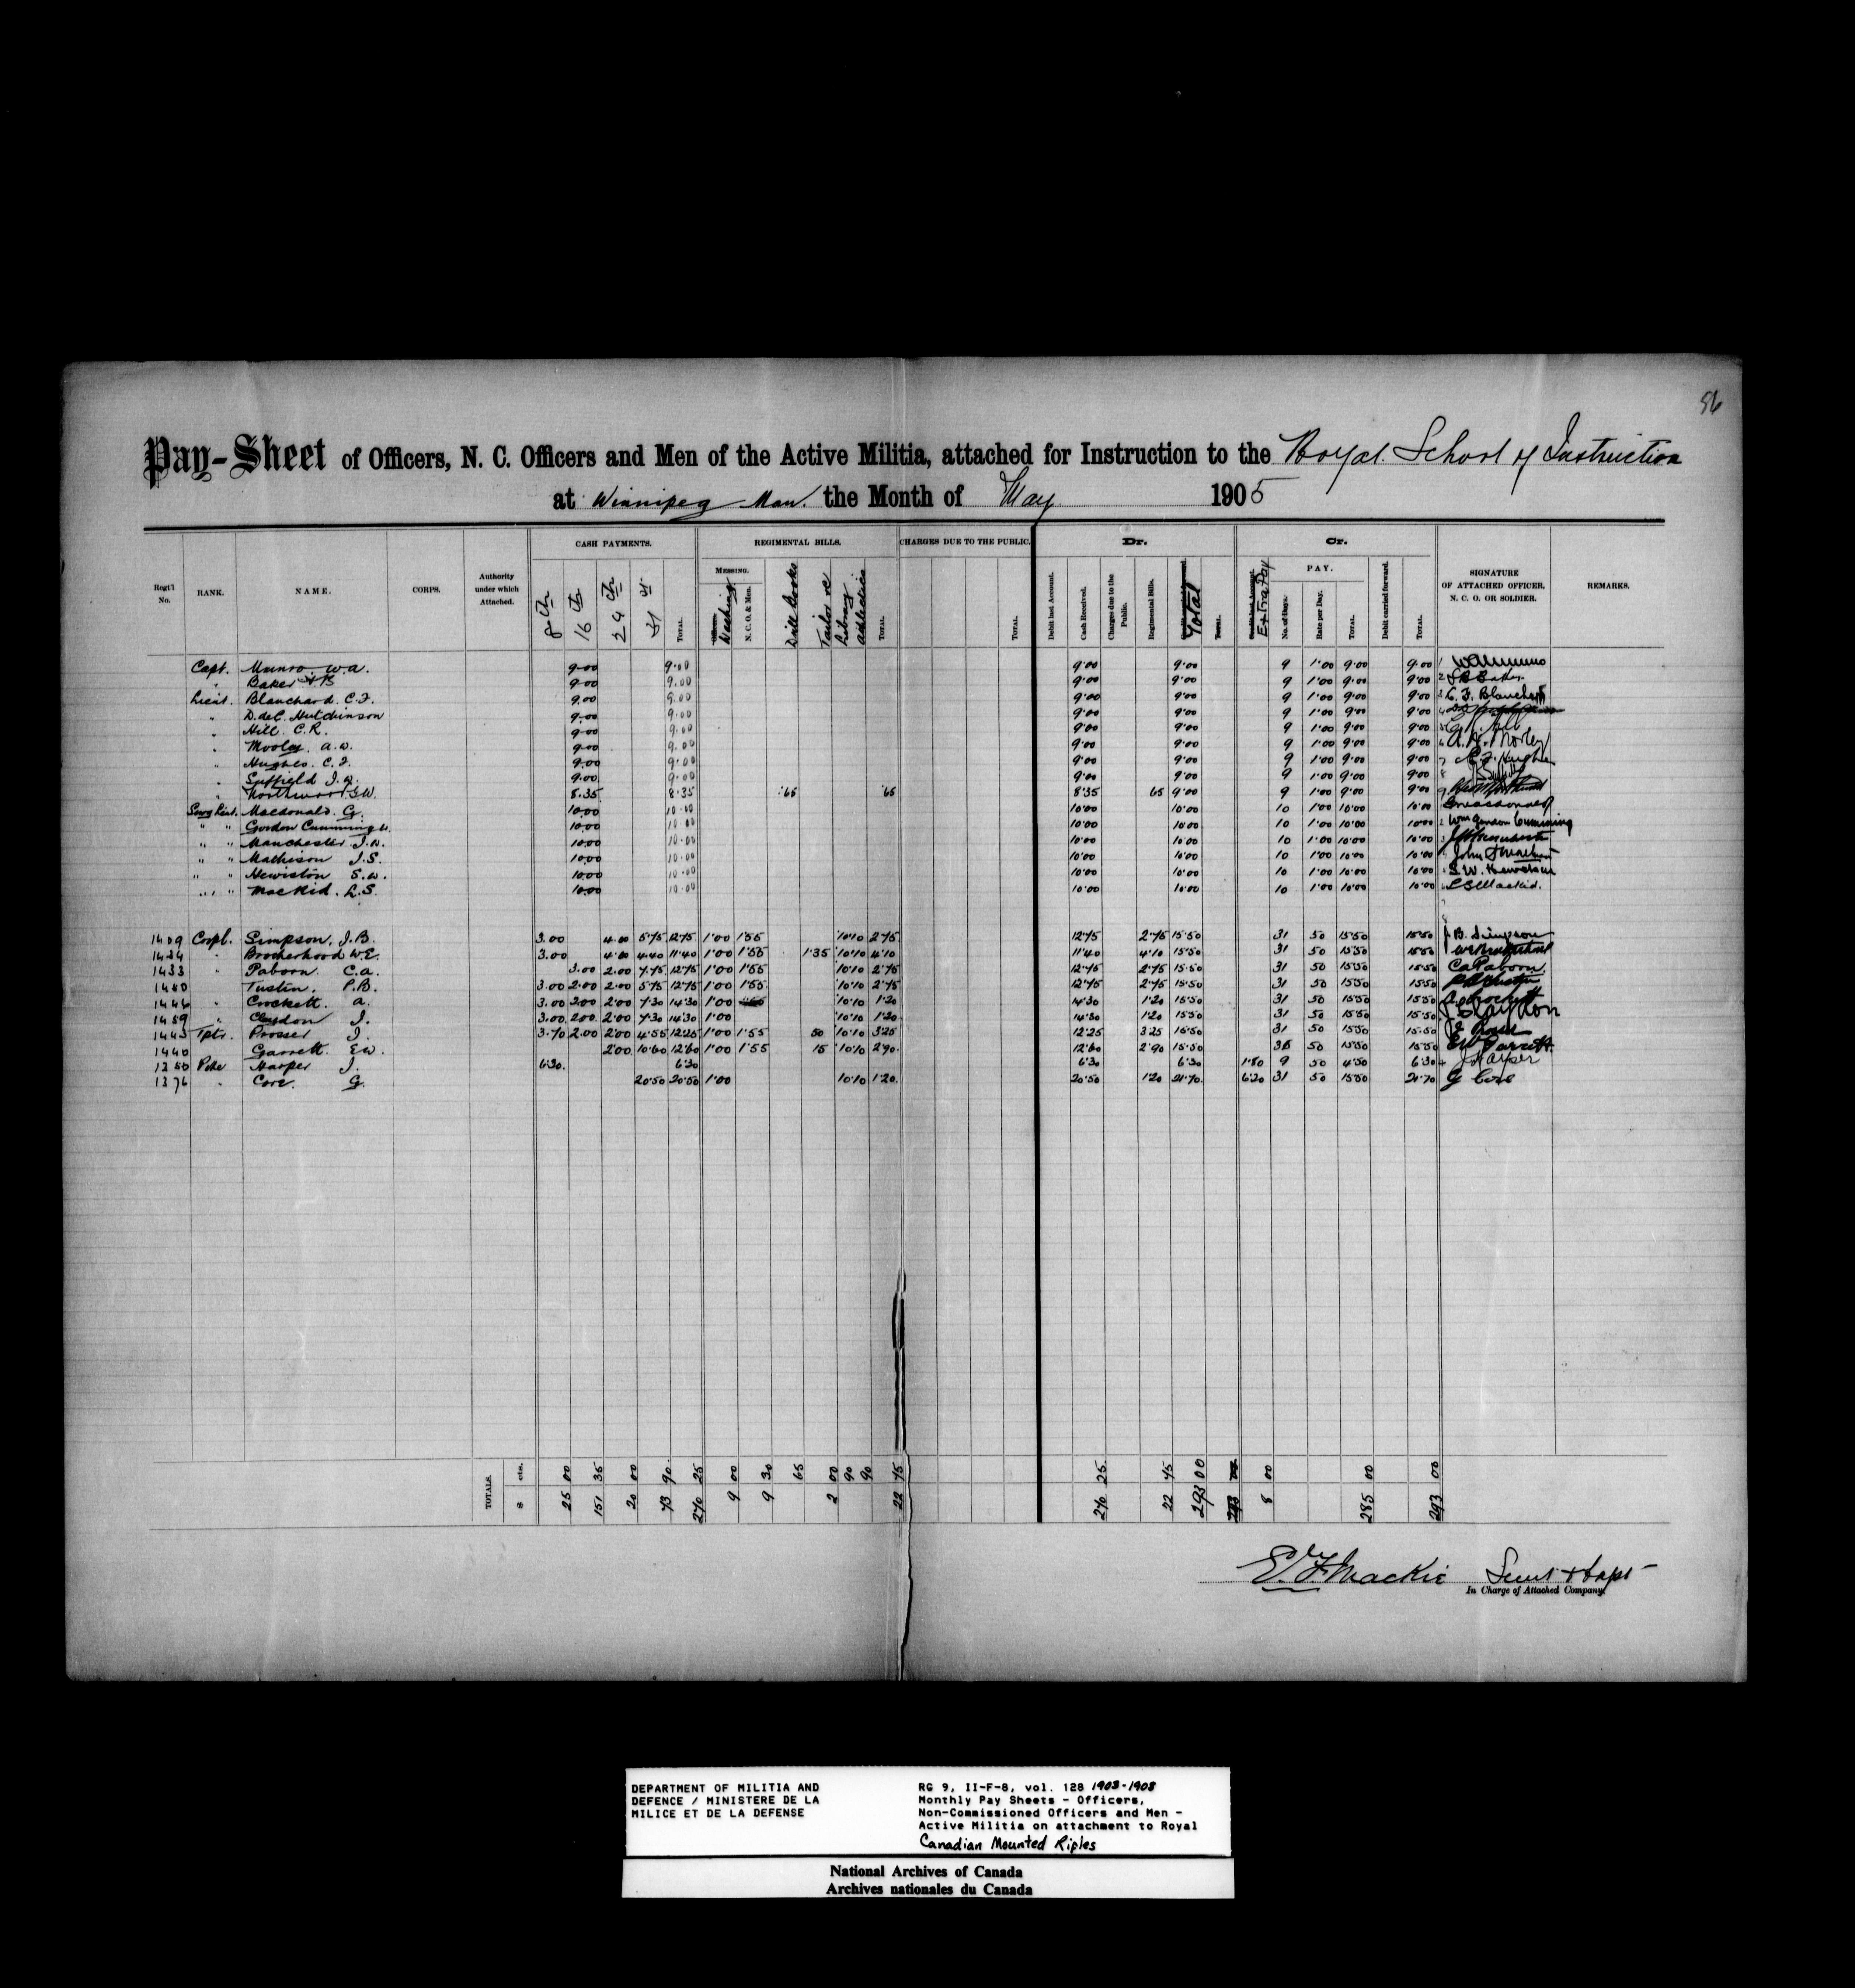 56
Pay-Sheet of Officers, N. C. Officers and Men of the Active Militia, attached for Instruction to the Royal School of Instruction
at Winnipeg Man. the Month of May 1905
Regt'l No. RANK. NAME. CORPS. Authority under which Attached. CASH PAYMENTS. REGIMENTAL BILLS. CHARGES DUE TO THE PUBLIC. Dr. Cr. SIGNATURE OF ATTACHED OFFICER, N. C. O. OR SOLDIER. REMARKS.
8th 16th 24th 31st TOTAL. MESSING. Washing N. C. O. & Men. Drill Books Tailor &c Library Athletics TOTAL. TOTAL. Debit last Account. Cash Received. Charges due to the Public. Regimental Bills. Total TOTAL. Extra Pay PAY. No. of Days. Rate per Day. TOTAL. Debit carried forward. TOTAL.
Capt. Munro W.A. 9.00 9.00 9.00 9.00 9 1.00 9.00 9.00 1
" Baker 9.00 9.00 9.00 9.00 9 1.00 9.00 9.00 2
Lieut. Blanchard C.F. 9.00 9.00 9.00 9.00 9 1.00 9.00 9.00 3 C. F. Blanchard
" D. deC. Hutchinson 9.00 9.00 9.00 9.00 9 1.00 9.00 9.00 4
" Hill C.R. 9.00 9.00 9.00 9.00 9 1.00 9.00 9.00 5
" A.W. 9.00 9.00 9.00 9.00 9 1.00 9.00 9.00 6
" Hughes. C.F. 9.00 9.00 9.00 9.00 9 1.00 9.00 9.00 7 C.F. Hughes
" Suffield J.W. 9.00 9.00 9.00 9.00 9 1.00 9.00 9.00 8
" Northwood G.W. 8.35 8.35 .65 .65 8.35 65 9.00 9 1.00 9.00 9.00 9
Lieut. Macdonald. G. 10.00 10.00 10.00 10.00 10 1.00 10.00 10.00
" " Gordon Cumming W. 10.00 10.00 10.00 10.00 10 1.00 10.00 10.00 2 Wm Gordon Cumming
" " Manchester J.W. 10.00 10.00 10.00 10.00 10 1.00 10.00 10.00
" " Mathison J.S. 10.00 10.00 10.00 10.00 10 1.00 10.00 10.00
" " Hewiston S.W. 10.00 10.00 10.00 10.00 10 1.00 10.00 10.00
" " MacKid. L.S. 10.00 10.00 10.00 10.00 10 1.00 10.00 10.00 L S MacKid.
1409 Corpl. Simpson. J.B. 3.00 4.00 5.75 12.75 1.00 1.55 10 10 2.75 12.75 2.75 15.50 31 50 15.50 15.50 J.B. Simpson
1424 " Brotherhood W.E. 3.00 4.00 4.40 11.40 1.00 1.55 1.35 10 10 4.10 11.40 4.10 15.50 31 50 15.50 15.50
1433 " Paboon C.A. 3.00 2.00 7.75 12.75 1.00 1.55 10 10 2.75 12.75 2.75 15.50 31 50 15.50 15.50
1440 Tustin. P.B. 3.00 2.00 2.00 5.75 12.75 1.00 1.55 10 10 2.75 12.75 2.75 15.50 31 50 15.50 15.50
1446 " Crockett. A. 3.00 2.00 2.00 7.30 14.30 1.00 10 10 1.20 14.30 1.20 15.50 31 50 15.50 15.50 A. Crockett
1459 " Claydon J. 3.00 2.00 2.00 7.30 14.30 1.00 10 10 1.20 14.30 1.20 15.50 31 50 15.50 15.50 J Claydon
1445 Tptr. Prosser J. 3.70 2.00 2.00 4.55 12.25 1.00 1.55 50 10 10 3.25 12.25 3.25 15.50 31 50 15.50 15.50
1440 Garrett. E.W. 2.00 10.60 12.60 1.00 1.55 15 10 10 2.90 12.60 2.90 15.50 31 50 15.50 15.50 EW Garrett.
1350 Pte Harper J. 6.30 6.30 6.30 6.30 1.80 9 50 4.50 6.30 J Harper
1376 " Core. G. 20.50 20.50 1.00 10 10 1.20 20.50 1.20 21.70 6.20 31 50 15.50 21.70 G Core
TOTALS. $ cts. 25 00 151 35 20 00 73 90 270 25 9 00 9 30 65 2 00 90 90 22 75 270 25 22 75 293 00 8 00 285 00 293 00
E. F. Mackie Lieut & Capt
In Charge of Attached Company.
DEPARTMENT OF MILITIA AND
DEFENCE / MINISTERE DE LA
MILICE ET DE LA DEFENSE
RG 9, II-F-8, vol. 128 1903-1908
Monthly Pay Sheets - Officers,
Non-Commissioned Officers and Men -
Active Militia on attachment to Royal
Canadian Mounted Rifles
National Archives of Canada
Archives nationales du Canada